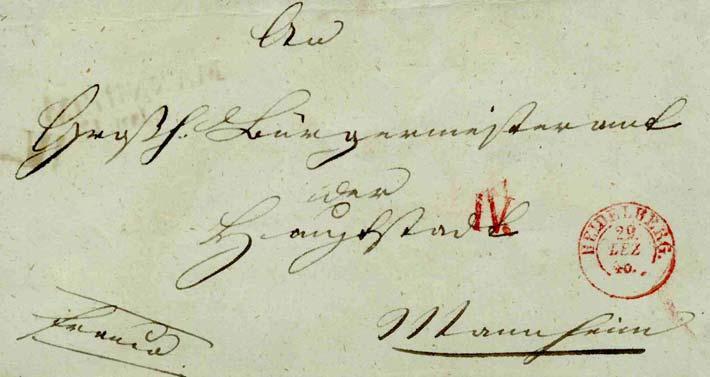 An
Großh. Bürgermeisteramt
der
Hauptstadt
IV.
HEIDELBERG.
29.
DEZ
40.
Franco.
Mannheim